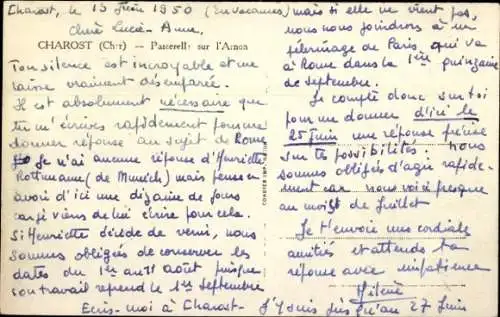 Charost, le 15 Juin 1950 (En vacances)
Chère Lucie-Anne,
CHAROST (Cher) - Passerelle sur l'Arnon
Ton silence est incroyable et me
laisse vraiment désemparée.
Il est absolument nécessaire que
tu m'écrives rapidement pour me
donner réponse au sujet de Rome
Je n'ai aucune réponse d'Henriette
Rothmann (de Munich) mais pense en
avoir d'ici une dizaine de jours
car je viens de lui écrire pour cela.
Si Henriette décide de venir, nous
sommes obligées de conserver les
dates du 1er au 31 août puisque
son travail reprend le 1er Septembre
mais si elle ne vient pas,
nous nous joindrons à un
pèlerinage de Paris, qui va
à Rome dans la 1ère quinzaine
de Septembre.
Je compte donc sur toi
pour me donner d'ici le
25 Juin une réponse précise
sur tes possibilités. Nous
sommes obligées d'agir rapide-
ment car nous voici presque
au mois de Juillet
Je t'envoie mes cordiales
amitiés et attends ta
réponse avec impatience
Ecris-moi à Charost - J'y suis jusqu'au 27 Juin